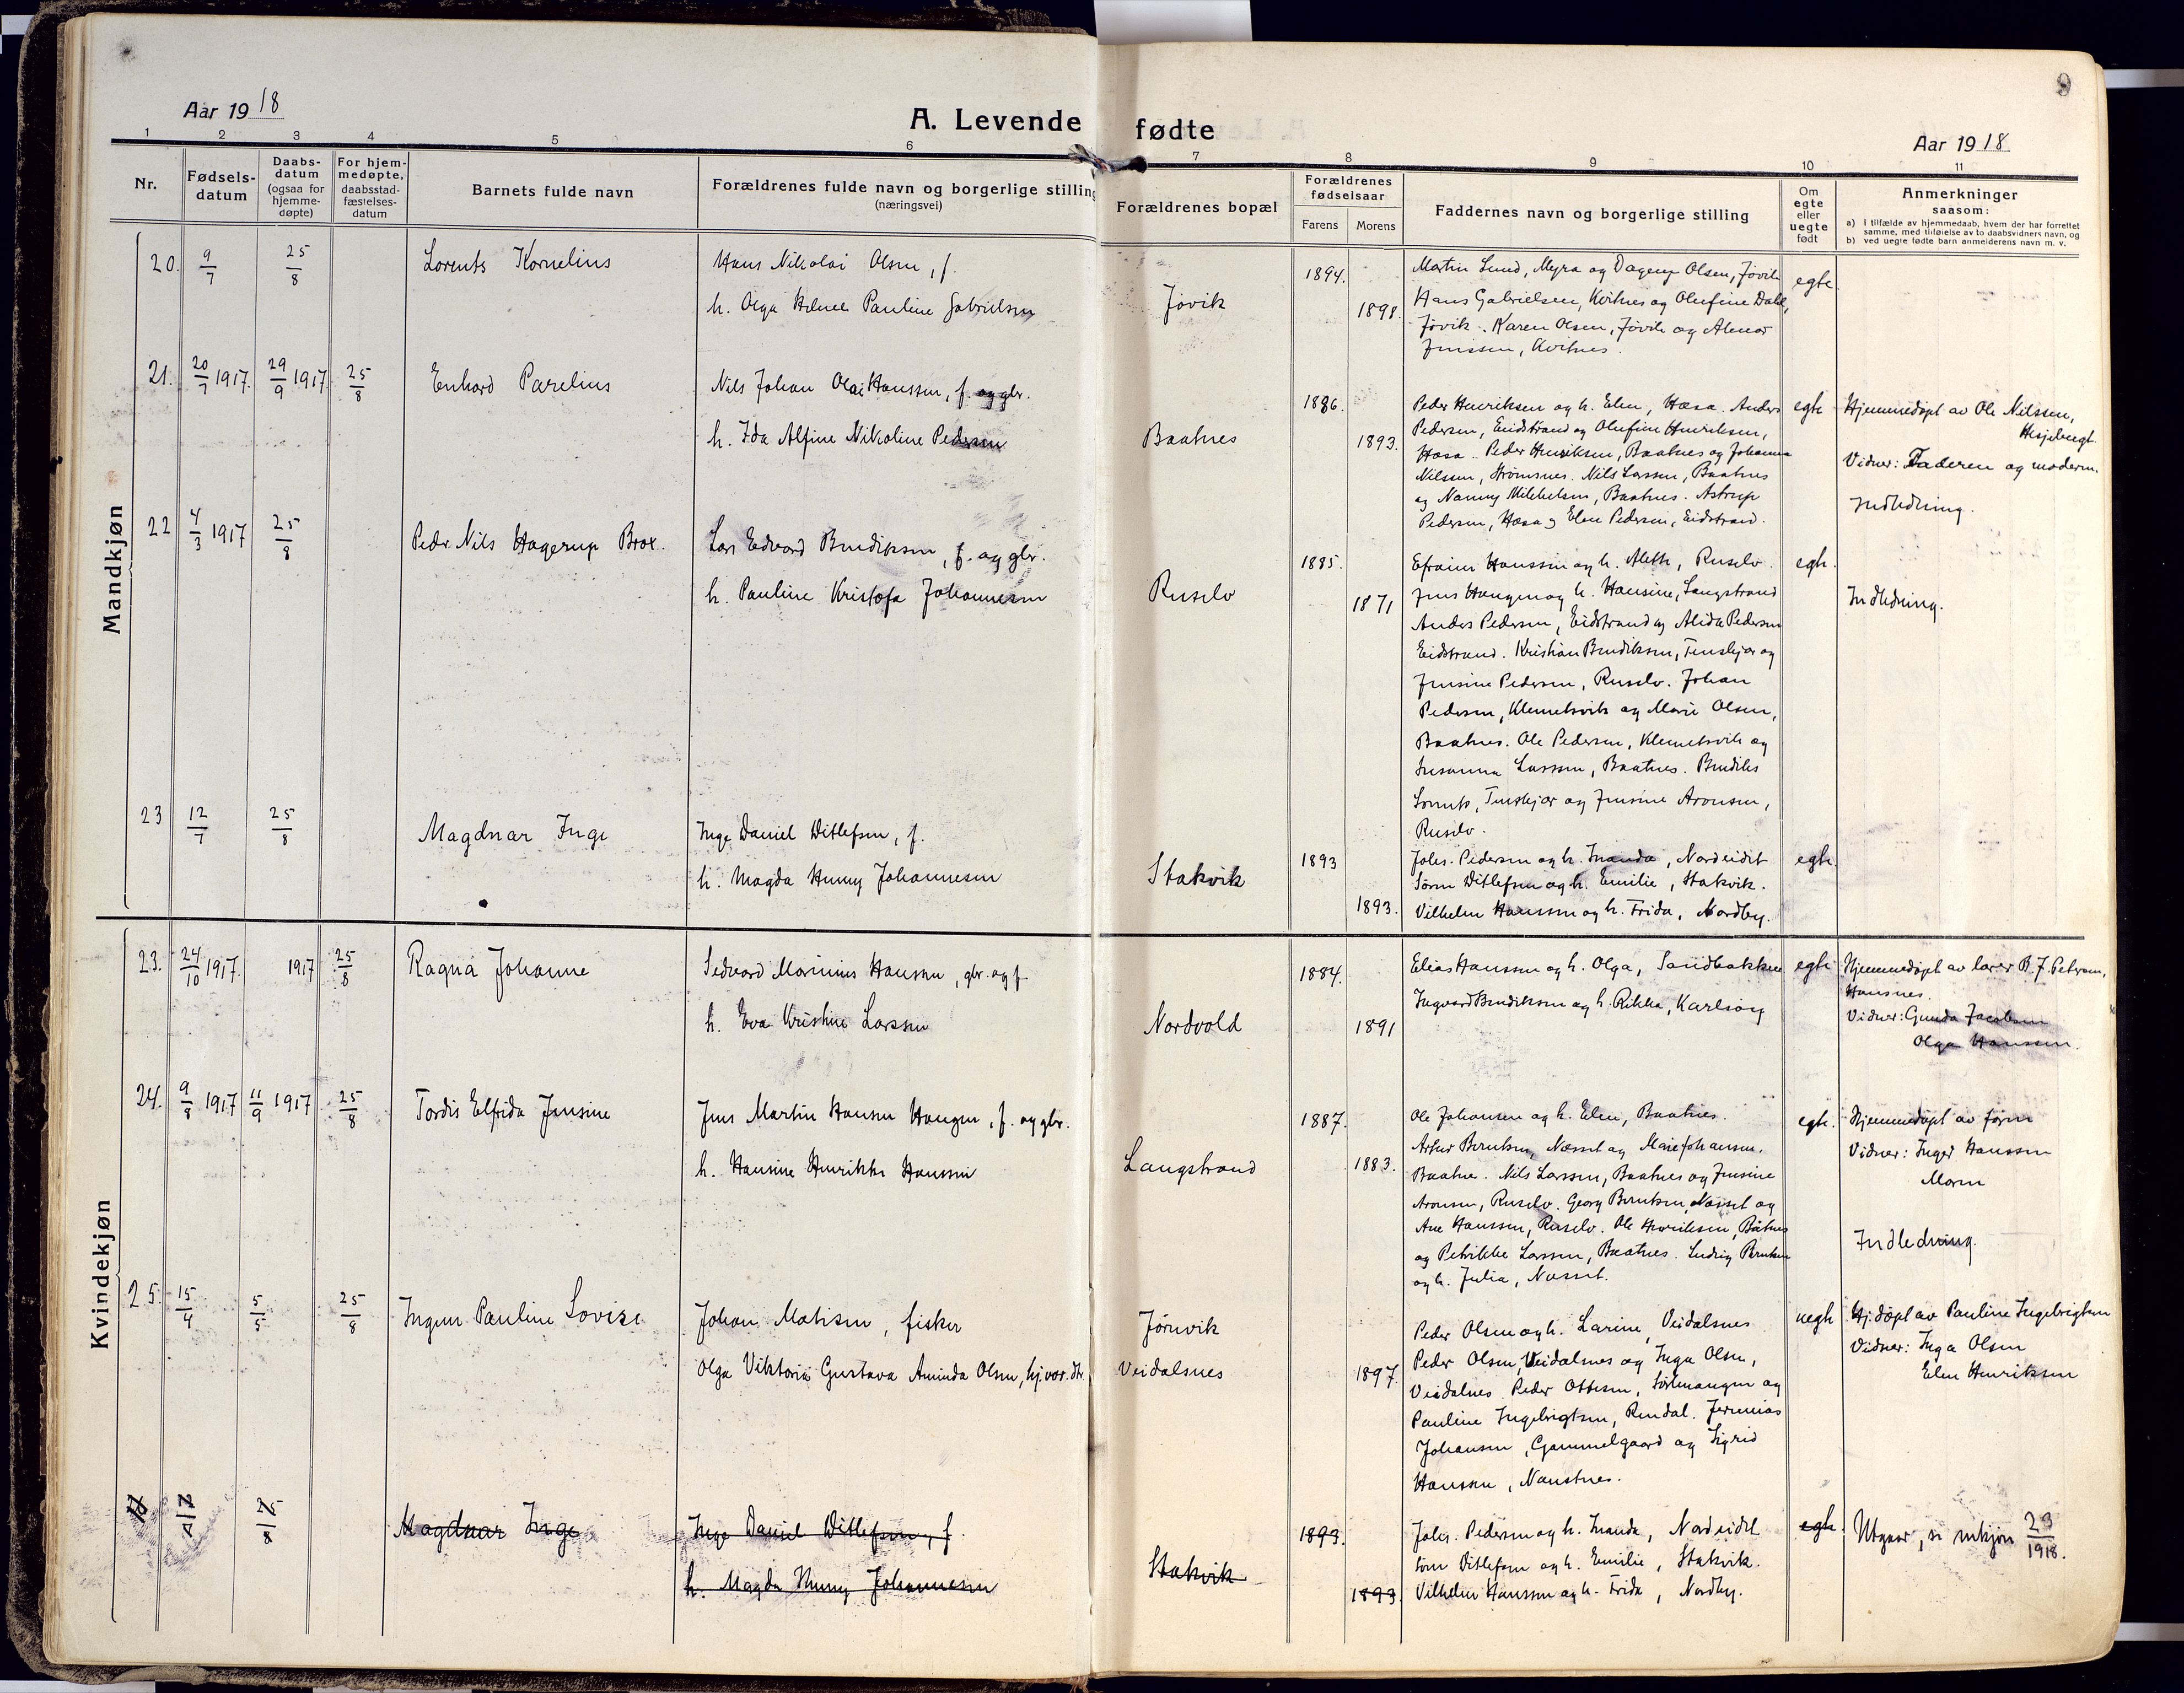 9
Aar 1918
A. Levende fødte
Aar 1918.
1 2 3 4 5 6 7 8 9 10 11
Nr.
Fødsels-
datum
Daabs-
datum
(ogsaa for
hjemme-
døpte)
For hjem-
medøpte,
daabsstad-
fæstelses-
datum
Barnets fulde navn
Forældrenes fulde navn og borgerlige stilling
(næringsvei)
Forældrenes bopæl
Forældrenes
fødselsaar
Farens Morens
Faddernes navn og borgerlige stilling
Om
egte
eller
uegte
født
Anmerkninger
saasom:
a) i tilfælde av hjemmedaab, hvem der har forrettet
samme, med tilføielse av to daabsvidners navn, og
b) ved uegte fødte barn anmelderens navn m. v.
Mandkjøn
20. 9/7 25/8 Lorents Kornelius
Hans Nikolai Olsen, f.
h. Olga Pauline Gabrielsen
Jøvik
1894.
1898.
Martin Lund, Myra og Dagny Olsen, Jøvik
Hans Gabrielsen, Kvitnes og Olufine Dahl,
Jøvik. Karen Olsen, Jøvik og
Jenssen, Kvitnes.
egte.
21. 20/7 1917. 29/9 1917 25/8 Enhard Parelius
Nils Johan Olai Hanssen, f. og gbr.
h. Ida Alfine Nikoline Pedersen
Baatnes
1886.
1893.
Peder Henriksen og h. Elen, Hæsa. Anders
Pedersen, Eidstrand og Olufine Henriksen,
Hæsa. Peder Henriksen, Baatnes og Johanna
Nilssen, Strømsnes. Nils Larssen, Baatnes
og Nanny Mikkelsen, Baatnes. Astrup
Pedersen, Hæsa og Elen Pedersen, Eidstrand.
egte
Hjemmedøpt av Ole Nilssen,
Vidner: Faderen og moderen.
Indledning.
22 4/3 1917 25/8 Peder Nils Hagerup Brox.
Lars Edvard Bendiksen, f. og gbr.
h. Pauline Kristofa Johannesen
Ruselv
1885.
1871
Efraim Hanssen og h. Aleth, Ruselv.
Jens Haugen og h. Hansine, Langstrand
Anders Pedersen, Eidstrand og Alida Pedersen
Eidstrand. Kristian Bendiksen, Tenskjær og
Jensine Pedersen, Ruselv. Johan
Pedersen, Klemetsvik og Marie Olsen,
Baatnes. Ole Pedersen, Klemetsvik og
Susanna Larssen, Baatnes. Bendiks
Lorents, Tenskjær og Jensine Aronsen,
Ruselv.
egte.
Indledning.
23 12/7 25/8 Magdnar Inge
Inge Daniel Ditlefsen, f.
h. Magda Hunny Johannesen
Stakvik
1893
1893.
Johs. Pedersen og h. Inanda, Nordeidet
Søren Ditlefsen og h. Emilie, Stakvik.
Vilhelm Hanssen og h. Frida, Nordby.
egte.
Kvindekjøn
23. 24/10 1917. 1917 25/8 Ragna Johanne
Sedvard Marinius Hanssen, gbr. og f
h. Eva Kristine Larssen
Nordvold
1884.
1891
Elias Hanssen og h. Olga, Sandbakken
Ingvard Bendiksen og h. Rikka, Karlsøy
egte
Hjemmedøpt av lærer B. J. Petersen,
Hansnes.
Vidner: Gunda Jacobsen
Olga Hanssen.
24. 9/8 1917 11/9 1917 25/8 Tordis Elfrida Jensine
Jens Martin Hansen Haugen, f. og gbr.
h. Hansine Henrikke Hanssen
Langstrand
1887.
1883.
Ole Johansen og h. Elen, Baatnes.
Arthur Berntsen, Næsset og Marie Johansen,
Baatnes. Nils Larssen, Baatnes og Jensine
Aronsen, Ruselv. Georg Berntsen, Næsset og
Ane Hanssen, Ruselv. Ole Henriksen, Båtnes
og Petrikke Larssen, Baatnes. Ludvig Berntsen
og h. Julia, Næsset.
egte.
Hjemmedøpt av faren
Vidner: Inger Hanssen
Moren
Indledning.
25. 15/4 5/5 25/8 Ingun Pauline Lovise
Johan Matisen, fisker
Olga Viktoria Gustava Aminda Olsen, hj.vær. dtr.
Jørnvik
Veidalsnes
1897.
Peder Olsen og h. Larine, Veidalsnes
Peder Olsen, Veidalsnes og Inga Olsen,
Veidalnes. Peder Ottesen, Sørlenangen og
Pauline Ingebrigtsen, Rendal. Jermias
Johansen, Gammelgaard og Sigrid
Hanssen, Naustnes.
uegte
Hj.døpt av Pauline Ingebrigtsen
Vidner: Inga Olsen
Elen Henriksen
12/7 25/8 Magdnar Inge
Inge Daniel Ditlefsen, f.
h. Magda Hunny Johannesen
Stakvik
1893.
1893.
Johs. Pedersen og h. Inanda, Nordeidet
Søren Ditlefsen og h. Emilie, Stakvik.
Vilhelm Hanssen og h. Frida, Nordby.
egte.
Utgaar, se mkjøn 23/1918.